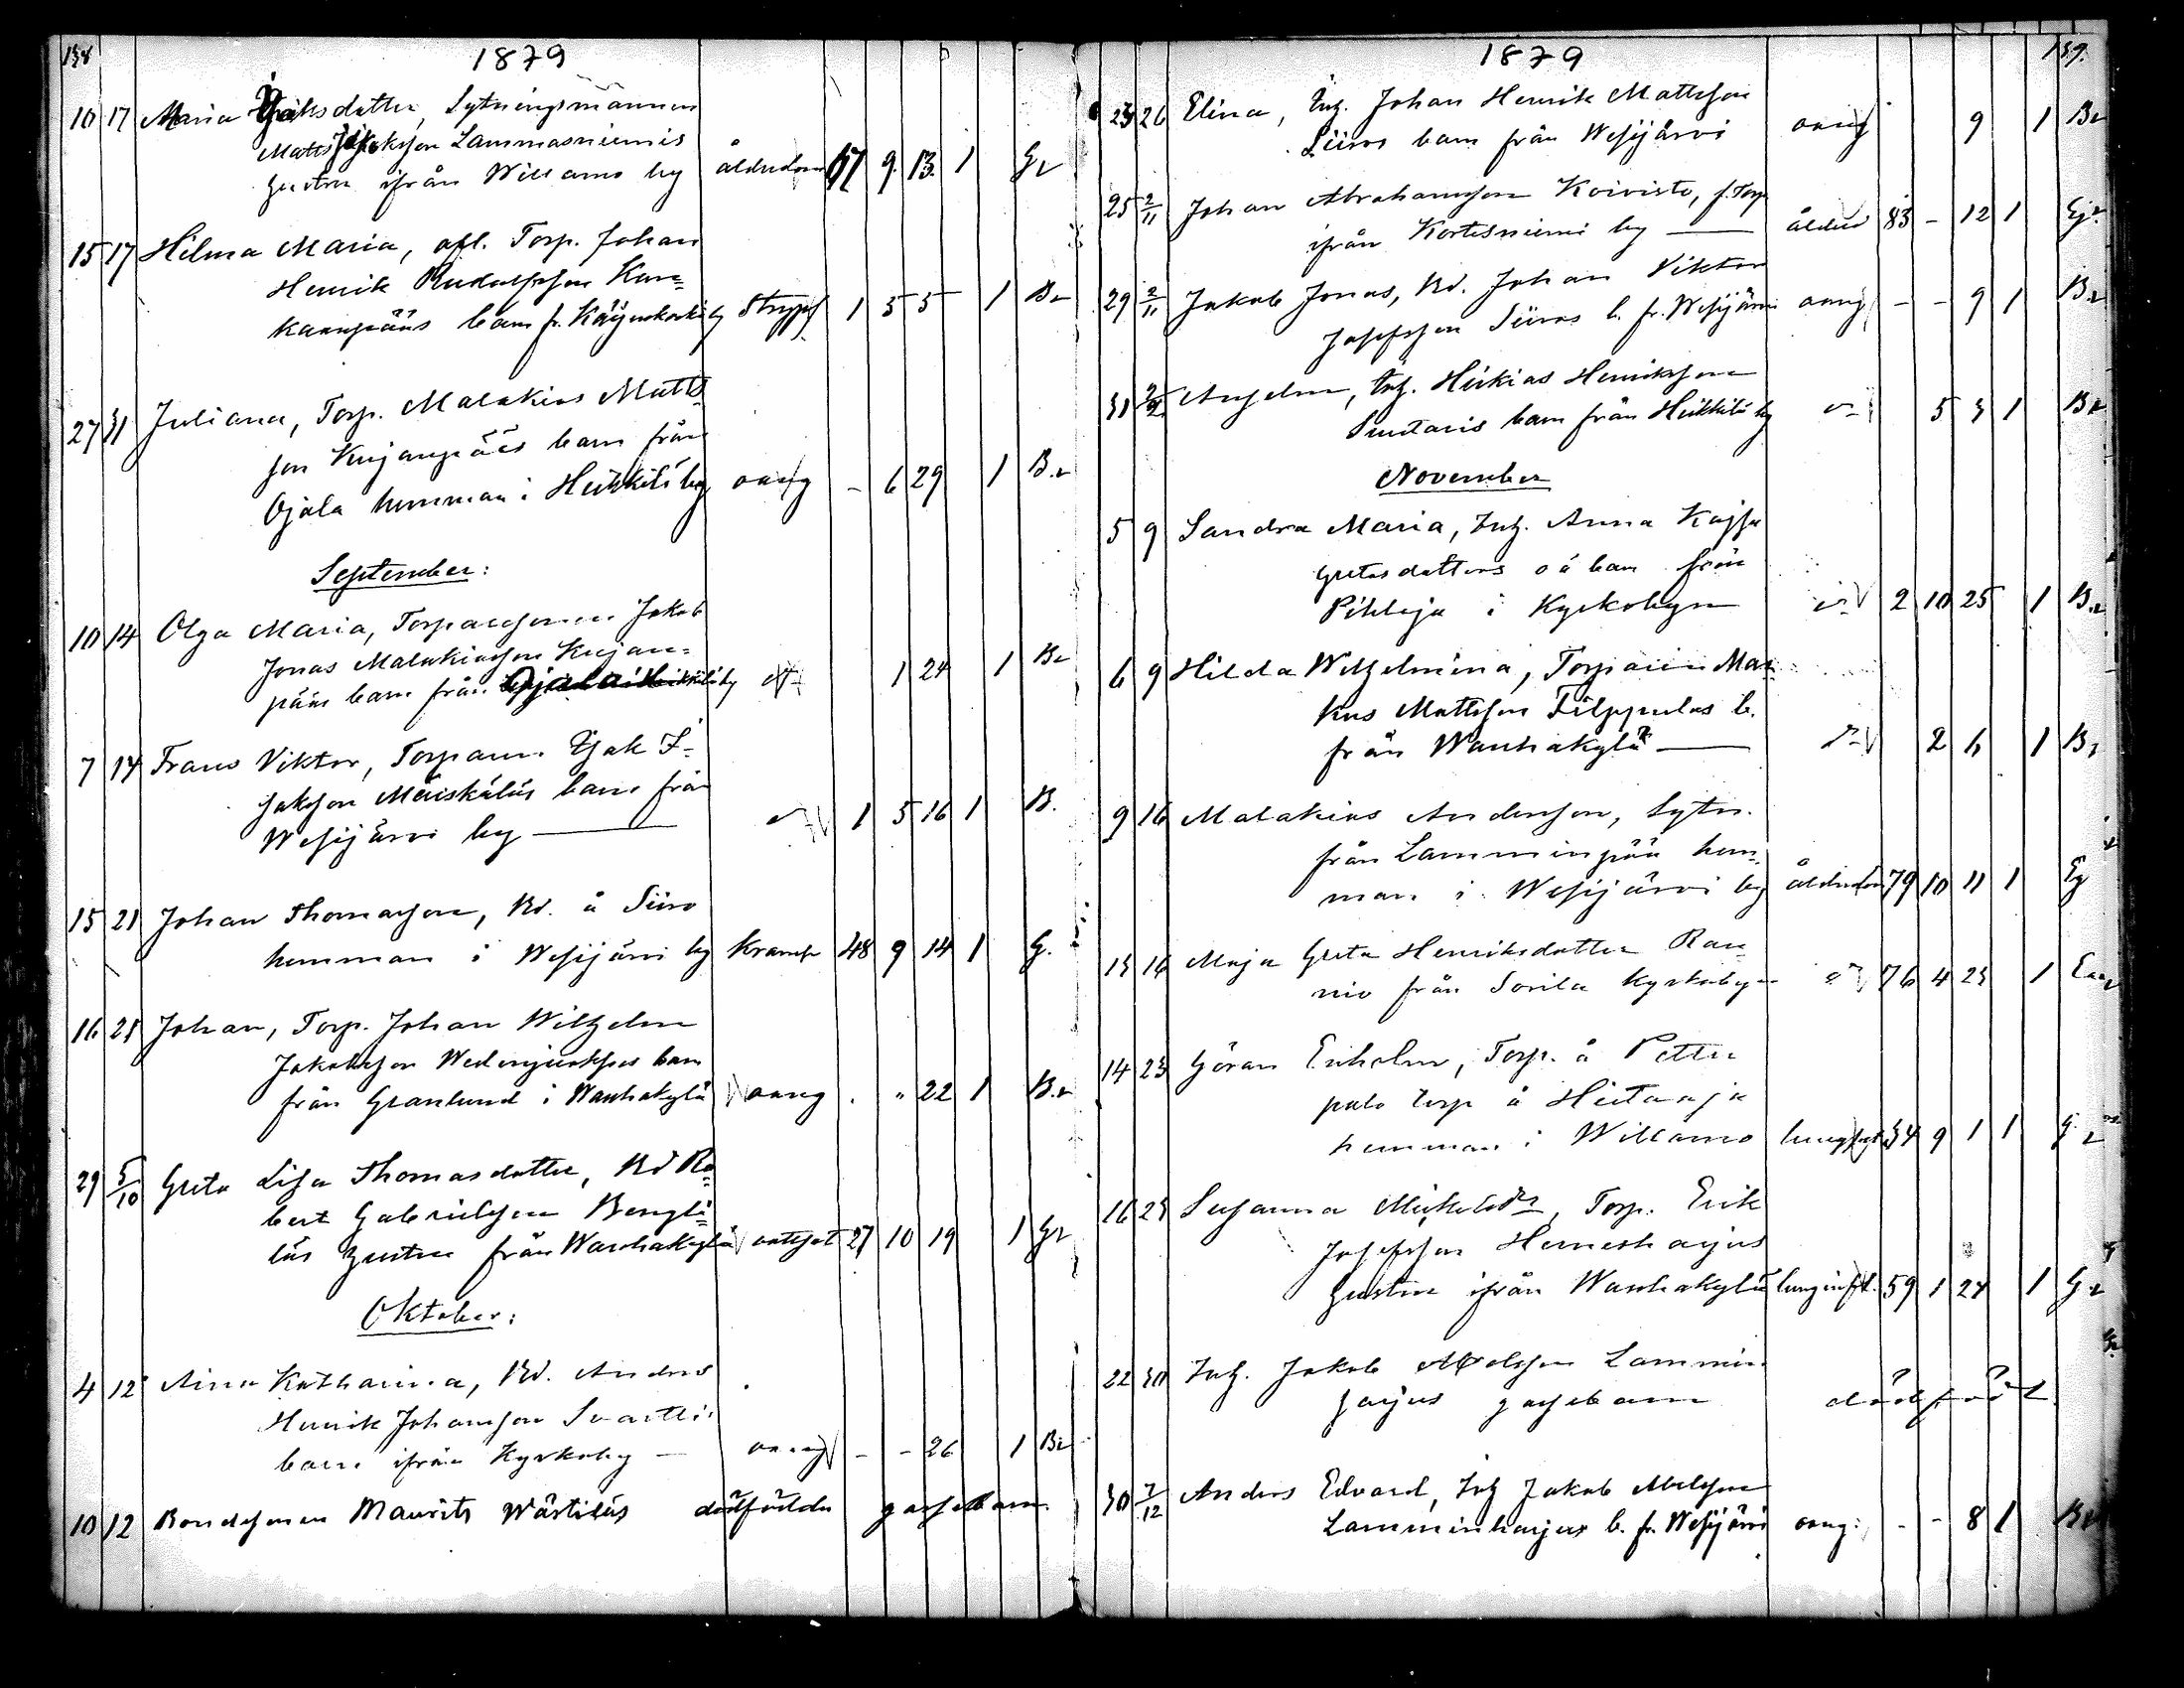 158
1879
10 17 Maria Isaksdotter, Sytningsmannen
Matts Isaksson Lammasniemis
hustru ifrån Willamo by ålderdom 67 9 13 1 Gr
15 17 Hilma Maria, afl. Torp. Johan
Henrik Rudolfsson Kan=
kaanpääs barn fr. Käyenkoski by Stryps 1 5 5 1 Br
27 31 Juliana, Torp. Malakias Matts=
son Kujanpääs barn från
Ojala hemman i Heikkilä by oang - 6 29 1 Br
September:
10 14 Olga Maria, Torparesonen Jakob
Jonas Malakiasson Kujan=
pääs barn från Ojala i Heikkilä by 1 24 1 Br
7 14 Frans Viktor, Torparen Isak I=
saksson Mäiskäläs barn från
Wesijärvi by 1 5 16 1 B.
15 21 Johan Thomasson, Bd. å Siiro
hemman i Wesijärvi by Kramp 48 9 14 1 G.
16 21 Johan, Torp. Johan Wilhelm
Jakobsson Wedenjuoksus barn
från Granlund i Wanhakylä oang . " 22 1 Br
29 5/10 Greta Lisa Thomasdotter, Bd Ro=
bert Gabrielsson Bengti=
läs hustru från Wanhakylä vattsot 27 10 19 1 Gr
Oktober:
4 12 Aina Katharina, Bd. Anders
Henrik Johansson Svarttis
barn ifrån Kyrkoby oang - - 26 1 Br
10 12 Bondesonen Maurits Wärtiläs dödfödda gossebarn.
159.
1879
23 26 Elina, Inh. Johan Henrik Mattsson
Siiros barn från Wesijärvi oang 9 1 Br
25 2/11 Johan Abrahamsson Koivisto, f. Torp
ifrån Kortesniemi by ålder 83 - 12 1 Gr
29 2/11 Jakob Jonas, Bd. Johan Viktor
Josefsson Siiros b. fr. Wesijärvi oang - - 9 1 Br
31 2/11 Anselm, Inh. Heikias Henriksson
Suutaris barn från Heikkilä by 5 3 1 Br
November
5 9 Sandra Maria, Inh. Anna Kajsa
Gretasdotters oä barn från
Pihlaja i Kyrkobyn 2 10 25 1 Br
6 9 Hilda Wilhelmina, Torparen Mar=
kus Mattsson Filppulas b.
från Wanhakylä 2 6 1 Br
9 16 Malakias Andersson, Sytn.
från Lamminpää hem=
man i Wesijärvi by ålderdom 79 10 11 1
13 16 Maja Greta Henriksdotter Ran=
nio från Sorila Kyrkobyn 76 4 23 1
14 23 Göran Erikslm, Torp. å Petter
palo torp å Hietaoja
hemman i Willamo lungsot 34 9 1 1 G
16 23 Susanna Mickelsdr, Torp. Erik
Josefsson Herneshajus
hustru ifrån Wanhakylä lunginfl. 59 1 24 1 Gr
22 30 Inh. Jakob Abelsson Lammin
harjus gossebarn dödfödt
30 7/12 Anders Edvard, Inh Jakob Abelsson
Lamminharjus b. fr. Wesijärvi oang: - - 8 1 Br